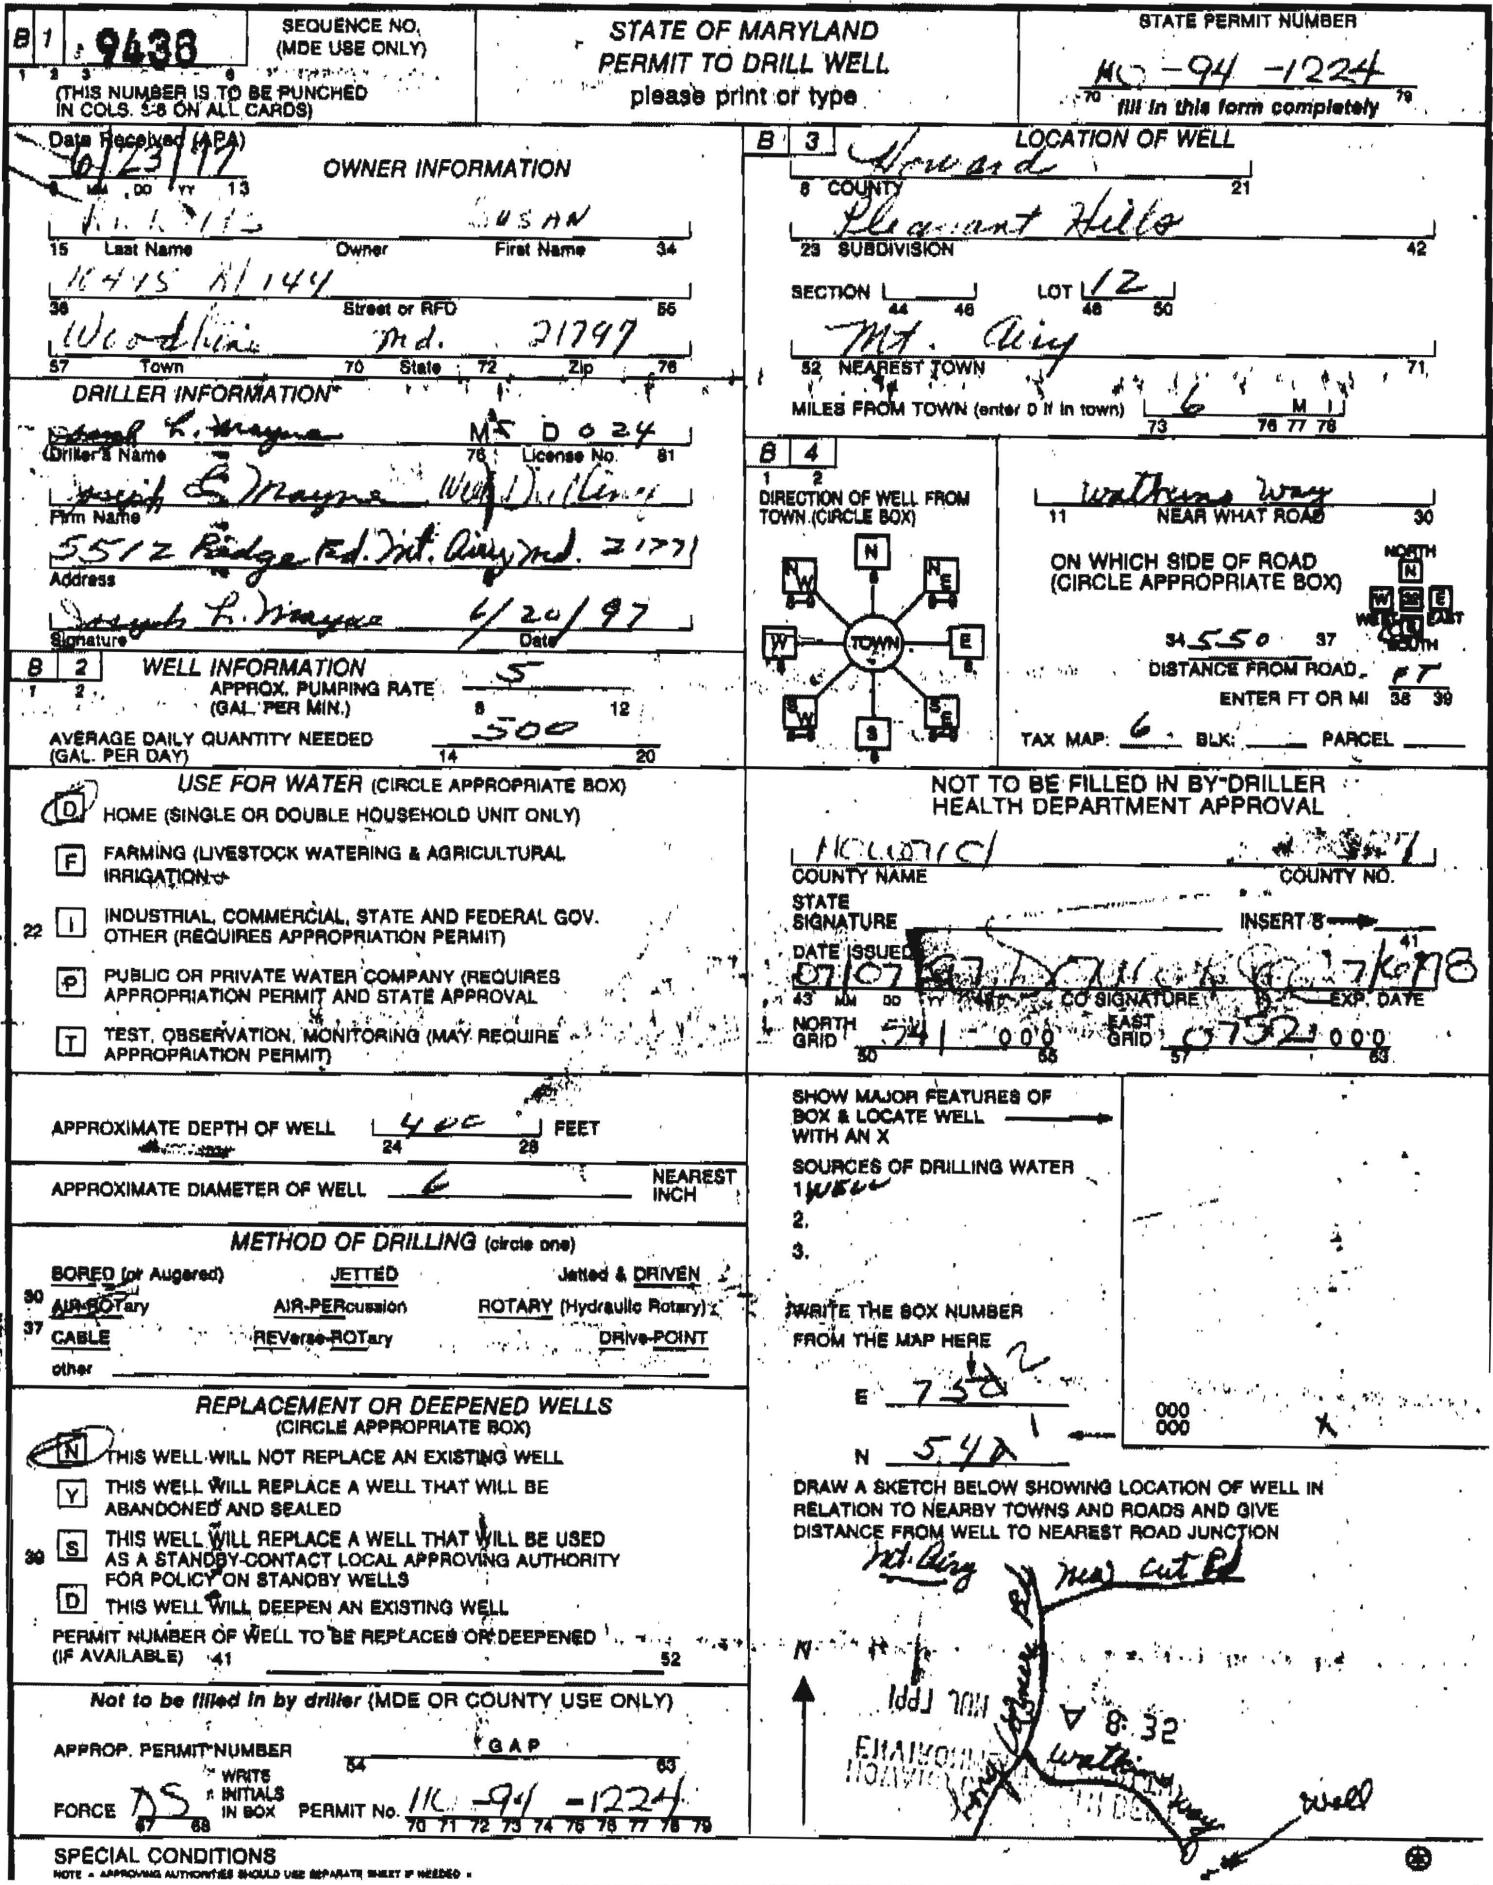 B 1 9438
SEQUENCE NO.
(MDE USE ONLY)
(THIS NUMBER IS TO BE PUNCHED
IN COLS. 3-6 ON ALL CARDS)
STATE OF MARYLAND
PERMIT TO DRILL WELL
please print or type
STATE PERMIT NUMBER
HO -94 -1224
70 79
fill in this form completely
Date Received (APA)
6/23/97
8 MM DD YY 13
OWNER INFORMATION
SUSAN
15 Last Name Owner First Name 34
144
36 Street or RFD 55
Woodbine Md. 21797
57 Town 70 State 72 Zip 76
DRILLER INFORMATION
Joseph L. Mayne M D 024
Driller's Name 76 License No. 81
Joseph L Mayne Well Drilling
Firm Name
5512 Ridge Rd. Mt. Airy, Md. 21771
Address
Joseph L. Mayne 6/20/97
Signature Date
B 2 WELL INFORMATION
1 2
APPROX. PUMPING RATE 5
(GAL. PER MIN.) 8 12
AVERAGE DAILY QUANTITY NEEDED 500
(GAL. PER DAY) 14 20
USE FOR WATER (CIRCLE APPROPRIATE BOX)
D HOME (SINGLE OR DOUBLE HOUSEHOLD UNIT ONLY)
F FARMING (LIVESTOCK WATERING & AGRICULTURAL
IRRIGATION
22 I INDUSTRIAL, COMMERCIAL, STATE AND FEDERAL GOV.
OTHER (REQUIRES APPROPRIATION PERMIT)
P PUBLIC OR PRIVATE WATER COMPANY (REQUIRES
APPROPRIATION PERMIT AND STATE APPROVAL
T TEST, OBSERVATION, MONITORING (MAY REQUIRE
APPROPRIATION PERMIT)
APPROXIMATE DEPTH OF WELL 400 FEET
24 28
APPROXIMATE DIAMETER OF WELL 6 NEAREST
INCH
METHOD OF DRILLING (circle one)
BORED (or Augered) JETTED Jetted & DRIVEN
30 AIR-ROTary AIR-PERcussion ROTARY (Hydraulic Rotary)
37 CABLE REVerse-ROTary DRive-POINT
other
REPLACEMENT OR DEEPENED WELLS
(CIRCLE APPROPRIATE BOX)
N THIS WELL WILL NOT REPLACE AN EXISTING WELL
Y THIS WELL WILL REPLACE A WELL THAT WILL BE
ABANDONED AND SEALED
39 S THIS WELL WILL REPLACE A WELL THAT WILL BE USED
AS A STANDBY-CONTACT LOCAL APPROVING AUTHORITY
FOR POLICY ON STANDBY WELLS
D THIS WELL WILL DEEPEN AN EXISTING WELL
PERMIT NUMBER OF WELL TO BE REPLACED OR DEEPENED
(IF AVAILABLE) 41 52
Not to be filled in by driller (MDE OR COUNTY USE ONLY)
APPROP. PERMIT NUMBER GAP
54 63
FORCE DS WRITE
INITIALS
IN BOX
67 68
PERMIT No. HO -94 -1224
70 71 72 73 74 75 76 77 78 79
SPECIAL CONDITIONS
NOTE - APPROVING AUTHORITIES SHOULD USE SEPARATE SHEET IF NEEDED
B 3 LOCATION OF WELL
Howard
8 COUNTY 21
Pleasant Hills
23 SUBDIVISION 42
SECTION LOT 12
44 46 48 50
Mt. Airy
52 NEAREST TOWN 71
MILES FROM TOWN (enter 0 if in town) 6 M I
73 76 77 78
B 4
1 2
DIRECTION OF WELL FROM
TOWN (CIRCLE BOX)
N
NW NE
W TOWN E
SW SE
S
Watkins Way
11 NEAR WHAT ROAD 30
ON WHICH SIDE OF ROAD
(CIRCLE APPROPRIATE BOX)
NORTH
N
W E
WEST EAST
S
SOUTH
34 550 37
DISTANCE FROM ROAD
ENTER FT OR MI FT
38 39
TAX MAP: 6 BLK: PARCEL
NOT TO BE FILLED IN BY DRILLER
HEALTH DEPARTMENT APPROVAL
Howard
COUNTY NAME COUNTY NO.
STATE
SIGNATURE INSERT S
41
DATE ISSUED
07/07/97 7/6/98
43 MM DD YY CO SIGNATURE EXP. DATE
NORTH
GRID 541 000
50 55
EAST
GRID 0752 000
57 63
SHOW MAJOR FEATURES OF
BOX & LOCATE WELL
WITH AN X
SOURCES OF DRILLING WATER
1 WELL
2.
3.
WRITE THE BOX NUMBER
FROM THE MAP HERE
E 750 2
N 540 1
000
000
X
DRAW A SKETCH BELOW SHOWING LOCATION OF WELL IN
RELATION TO NEARBY TOWNS AND ROADS AND GIVE
DISTANCE FROM WELL TO NEAREST ROAD JUNCTION
Mt. Airy New Cut Rd
N
A 8:32
Watkins Way
Well